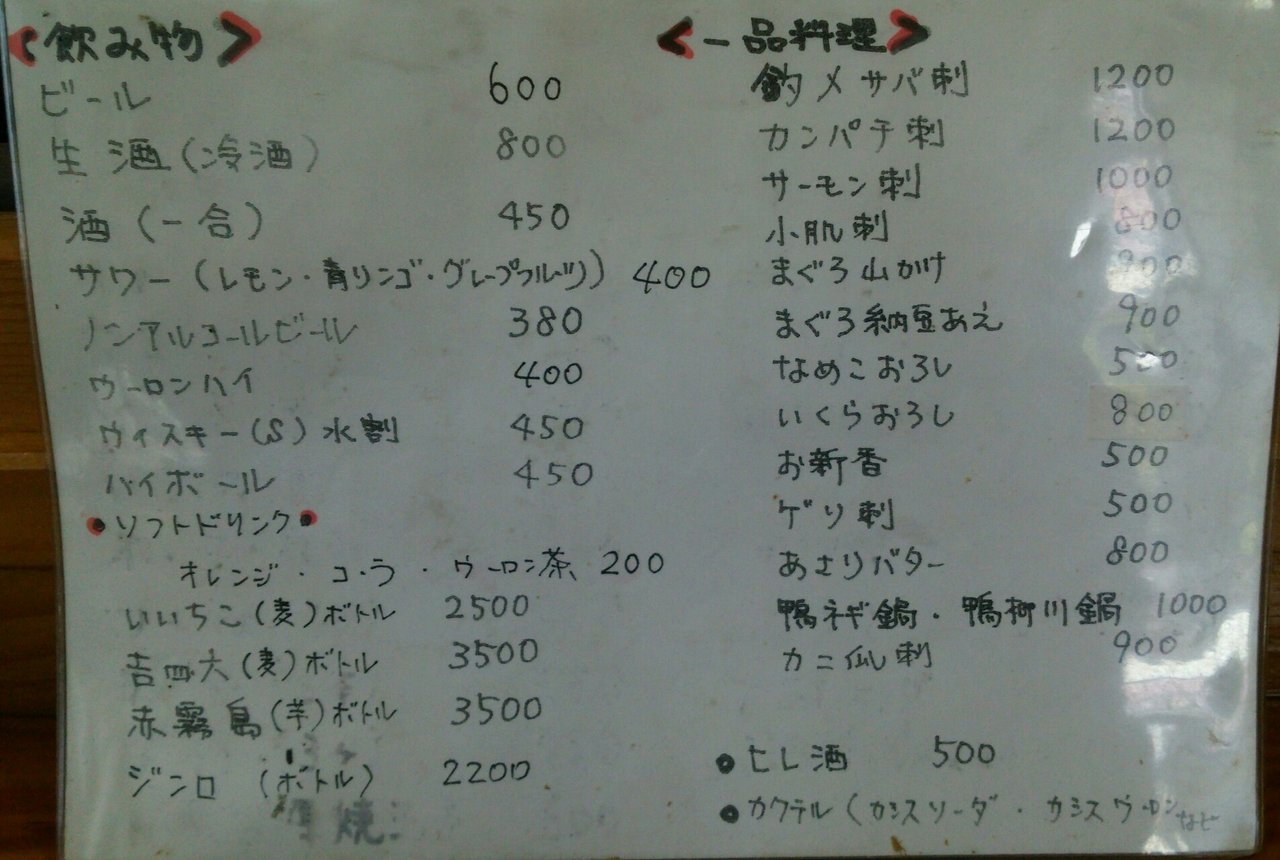 <飲み物>
ビール 600
生酒(冷酒) 800
酒(一合) 450
サワー(レモン・青リンゴ・グレープフルーツ) 400
ノンアルコールビール 380
ウーロンハイ 400
ウィスキー(S)水割 450
ハイボール 450
●ソフトドリンク●
オレンジ・コーラ・ウーロン茶 200
いいちこ(麦)ボトル 2500
吉四六(麦)ボトル 3500
赤霧島(芋)ボトル 3500
ジンロ (ボトル) 2200
<一品料理>
釣〆サバ刺 1200
カンパチ刺 1200
サーモン刺 1000
小肌刺 800
まぐろ山かけ
まぐろ納豆あえ 900
なめこおろし 500
いくらおろし 800
お新香 500
ゲソ刺 500
あさりバター 800
鴨ネギ鍋・鴨柳川鍋 1000
カニ 刺 900
●ヒレ酒 500
●カクテル(カシスソーダ・カシスウーロンなど